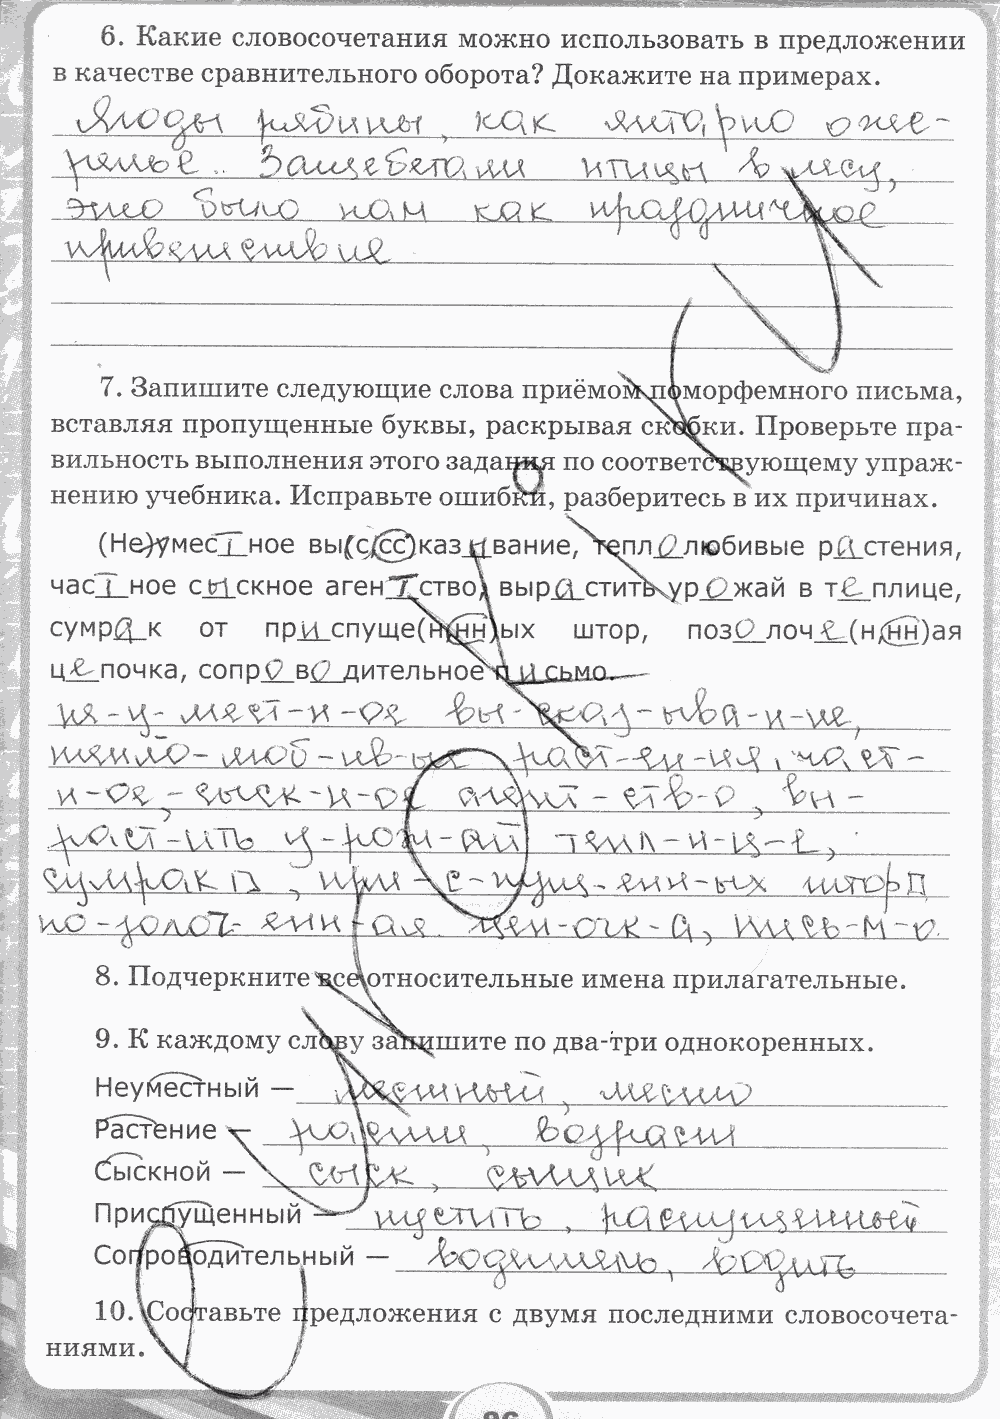 6. Какие словосочетания можно использовать в предложении
в качестве сравнительного оборота? Докажите на примерах.
Ягоды рябины, как янтарно оже-
релье.. Защебетали птицы в лесу,
это было нам как праздничное
приветствие
7. Запишите следующие слова приёмом поморфемного письма,
вставляя пропущенные буквы, раскрывая скобки. Проверьте пра-
вильность выполнения этого задания по соответствующему упраж-
нению учебника. Исправьте ошибки, разберитесь в их причинах.
(Не)умес_т_ное вы(с,сс)каз_ы_вание, тепл_о_любивые р_а_стения,
час_т_ное с_ы_скное аген_т_ство, выр_а_стить ур_о_жай в т_е_плице,
сумр_а_к от пр_и_спуще(н,нн)ых штор, поз_о_лоч_е_(н,нн)ая
ц_е_почка, сопр_о_в_о_дительное п_и_сьмо.
не-у-мест-н-ое вы-сказ-ыва-н-ие,
тепло-люб-ив-ые раст-ен-ия, част-
н-ое,-сыск-н-ое агент-ств-о, вы-
раст-ить у-рож-ай тепл-и-ц-е,
сумрак, при-с-пущ-енн-ых штор
по-золоч-енн-ая цеп-очк-а, пись-м-о.
8. Подчеркните все относительные имена прилагательные.
9. К каждому слову запишите по два-три однокоренных.
Неуместный — местный, место
Растение — растит, возраст
Сыскной — сыск, сыщик
Приспущенный — пустить, распущенный
Сопроводительный — водитель, водить
10. Составьте предложения с двумя последними словосочета-
ниями.